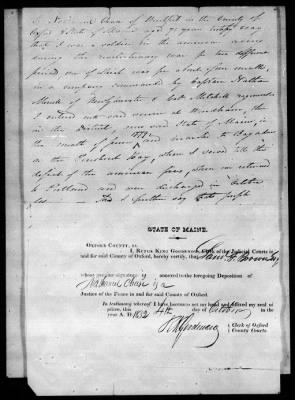 I Nathaniel Chase of Buckfield in the County of
Oxford & State of Maine aged 71 years testify & say
that I was a soldier in the american army
during the revolutionary war for two different
periods one of which was for about four months
in a company commanded by Captain Nathan
Merrill of Newgloucester & Col. Mitchell's regiment
I entered said service at Windham, then
in the District, now said State of Maine, in
the month of June 1779 and marched to Bagaduce
on the Penobscot Bay, where I served till the
defeat of the american forces, when we returned
to Portland and were discharged in October
I further say that
STATE OF MAINE.
OXFORD COUNTY, ss.
I, RUFUS KING GOODENOW, Clerk of the Judicial Courts in
and for said County of Oxford, hereby certify, that
whose genuine signature is annexed to the foregoing Deposition of
Nathaniel Chase is a
Justice of the Peace in and for said County of Oxford.
In testimony whereof I have hereunto set my hand and affixed my seal of
office, this 4th day of October in the
year A. D. 1832
R K Goodenow Clerk of Oxford
County Courts.